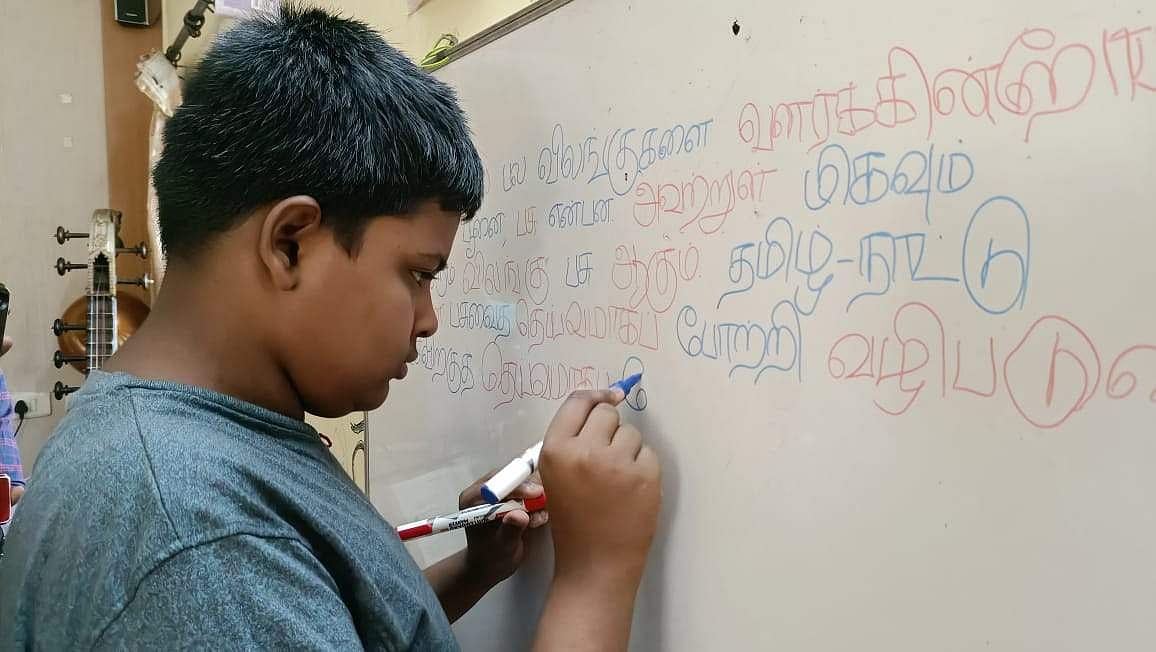 பல விலங்குகளை வளர்க்கின்றோம்
பூனை, பசு என்பன. அவற்றுள் மிகவும்
விலங்கு பசு ஆகும். தமிழ்-நாட்டு
பசுவைத் தெய்வமாகப் போற்றி வழிபடு
தெய்வமாக